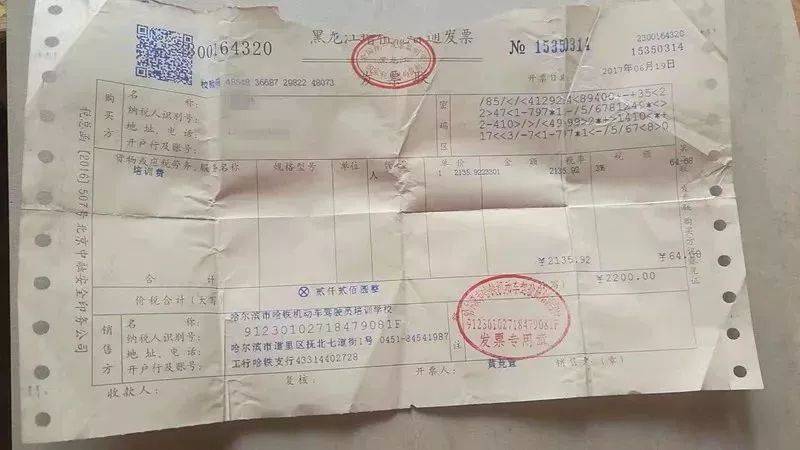 2300164320
黑龙江增值税普通发票
发票联
黑龙江
№ 15350314
2300164320
15350314
校验码 48548 36687 29822 48073
开票日期: 2017年06月19日
购买方
名 称:
纳税人识别号:
地 址、电 话:
开户行及账号:
密码区
/85/</<412924<89400+-+35<2
2>47<1-797*1-/5/6781>49*<>
2-410>/>/<49>99>2*+>1410<*+
17<<3/-7<1-797*1<-/5/67<8>0
货物或应税劳务、服务名称 规格型号 单位 单 价 金 额 税率 税 额
培训费 人 1 2135.9223301 2135.92 3% 64.08
合 计 ¥2135.92 ¥64.08
价税合计(大写) ⊗贰仟贰佰圆整 ¥2200.00
销售方
名 称: 哈尔滨市哈铁机动车驾驶员培训学校
纳税人识别号: 91230102718479081F
地 址、电 话: 哈尔滨市道里区抚北七道街1号 0451-84541987
开户行及账号: 工行哈铁支行43314402728
注
91230102718479081F
发票专用章
收款人: 复核: 开票人: 销售方:(章)
税总函 (2016) 507号 北京中融安全印务公司